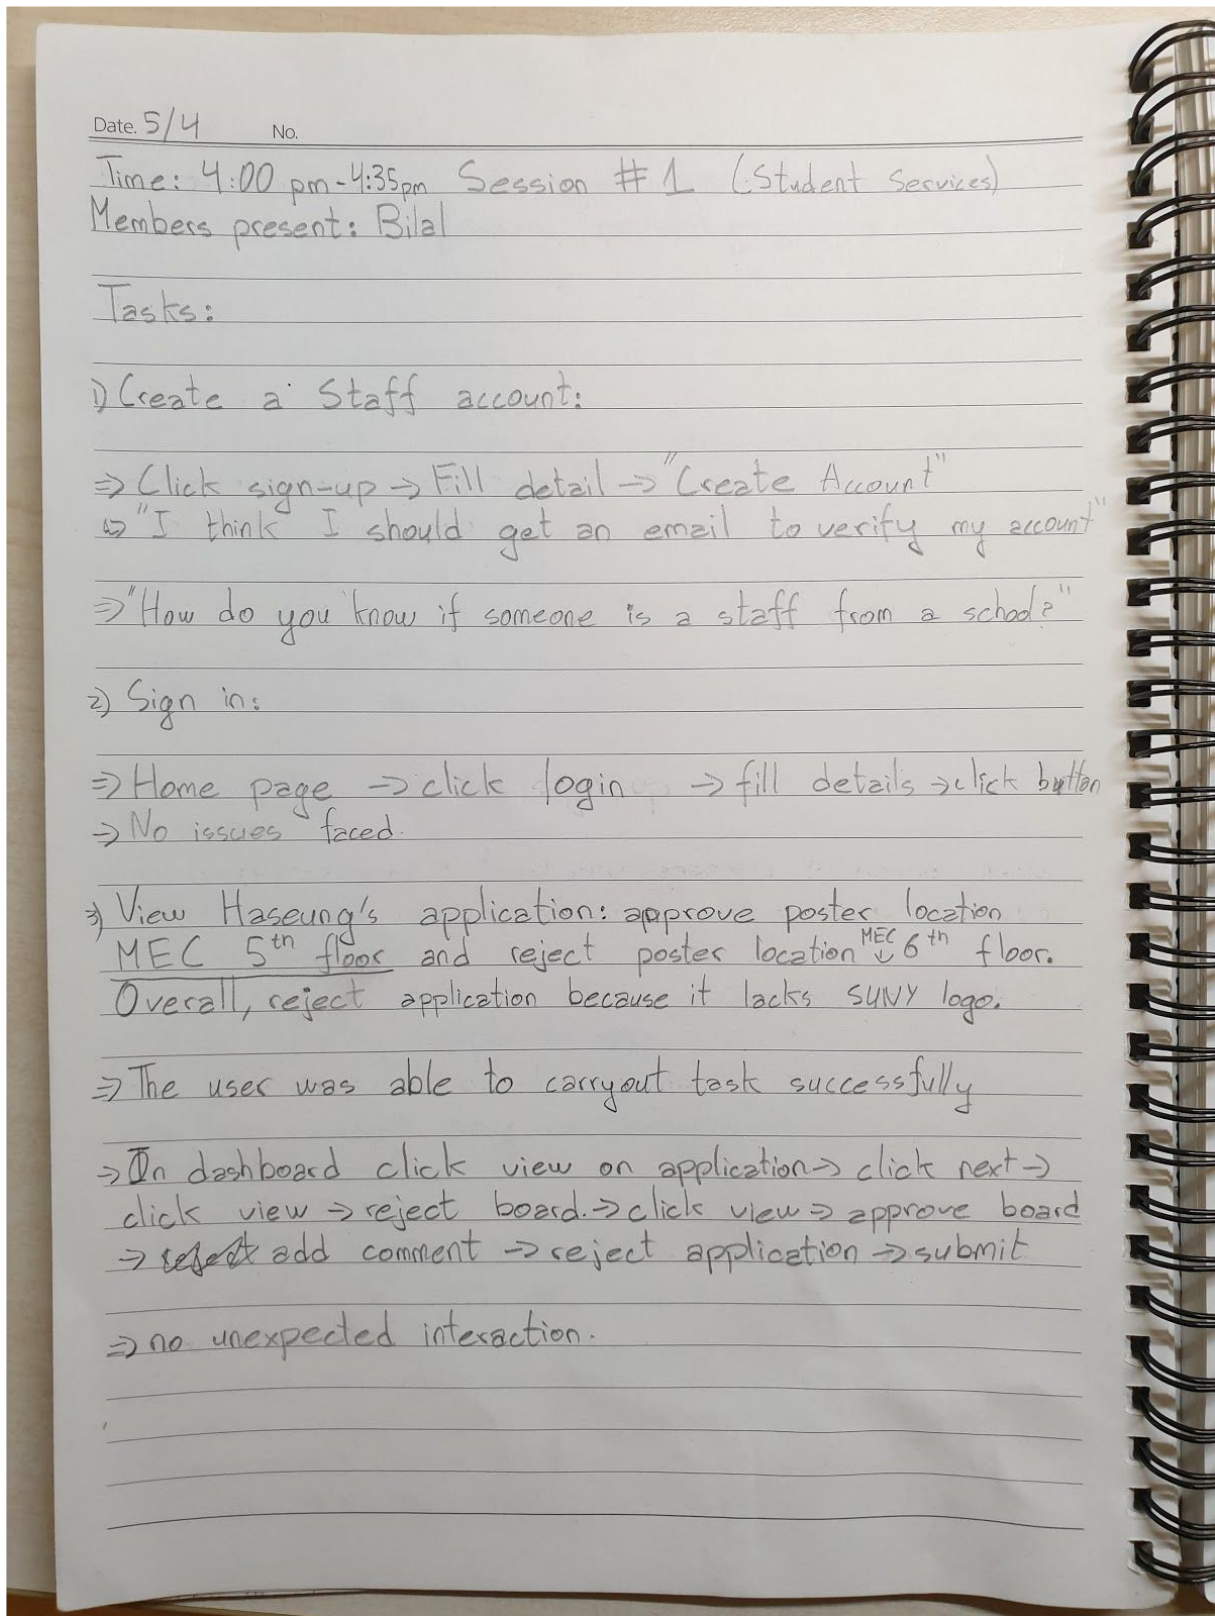 Date. 5/4 No.
Time: 4:00 pm-4:35pm Session #1 (Student Services)
Members present: Bilal
Tasks:
1) Create a Staff account:
⇒ Click sign-up → Fill detail → "Create Account"
↳ "I think I should get an email to verify my account"
⇒ "How do you know if someone is a staff from a school?"
2) Sign in:
⇒ Home page → click login → fill details → click button
⇒ No issues faced.
3) View Haseung's application: approve poster location
MEC 5th floor and reject poster location MEC 6th floor.
Overall, reject application because it lacks SUNY logo.
⇒ The user was able to carryout task successfully
→ On dashboard click view on application → click next →
click view → reject board. → click view ⇒ approve board
→ add comment → reject application → submit
⇒ no unexpected interaction.